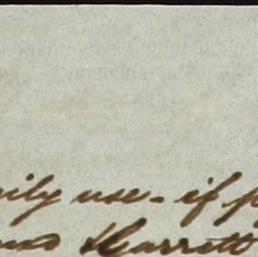 ily use - if p
Garrett